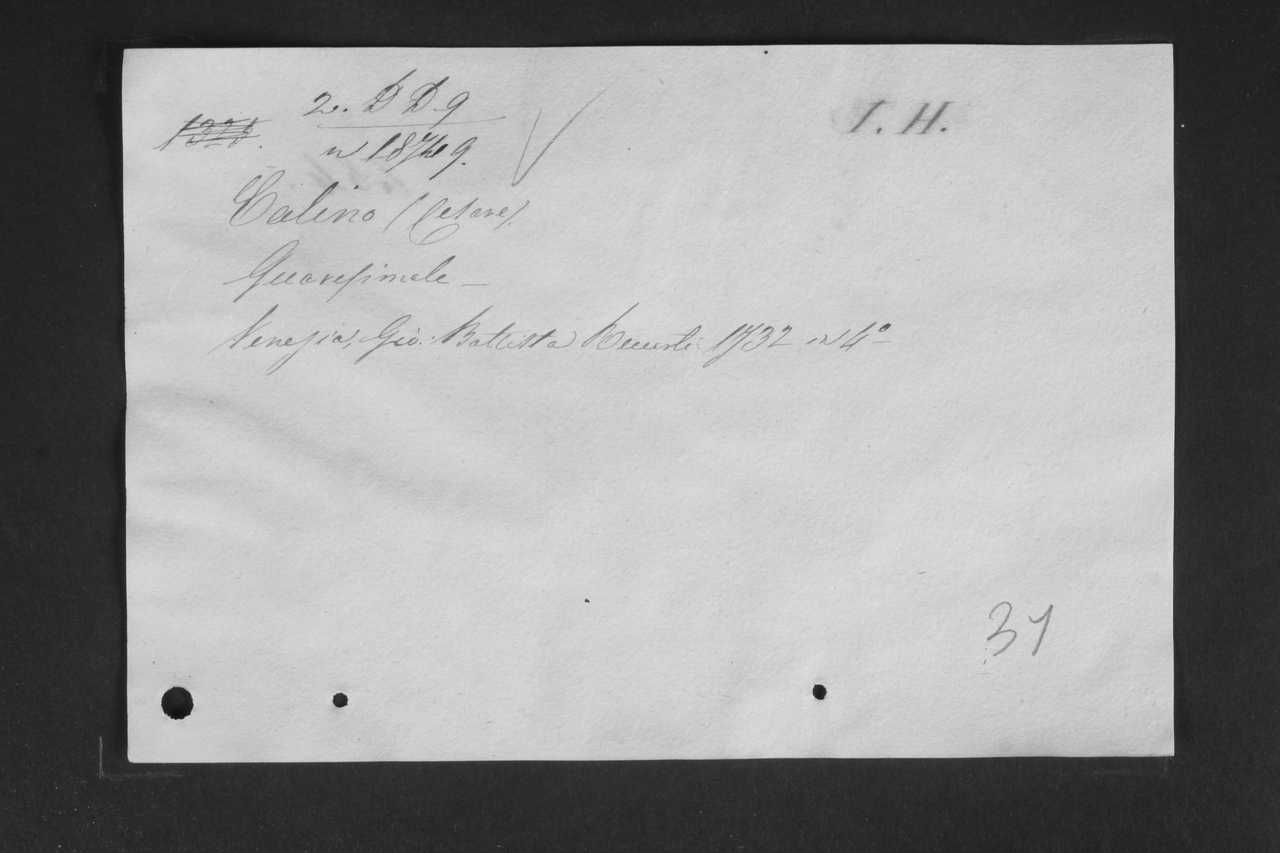 2. D D. 9
I. H.
Calino (Cesare).
Quaresimale —
Venezia, Gio: Battista Recurti 1732 in 4º
31